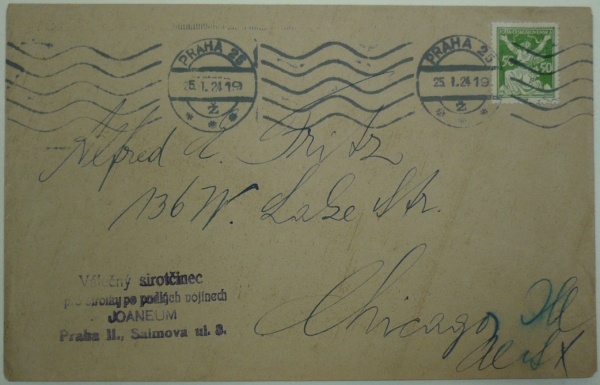 PRAHA 25
25. I. 24 19
ž
PRAHA 25
25. I. 24 19
ž
50 50
Alfred A. Fritz
136 W. Lake Str.
Chicago, Ill
Válečný sirotčinec
pro sirotky po padlých vojínech
JOANEUM
Praha II., Salmova ul. 8.